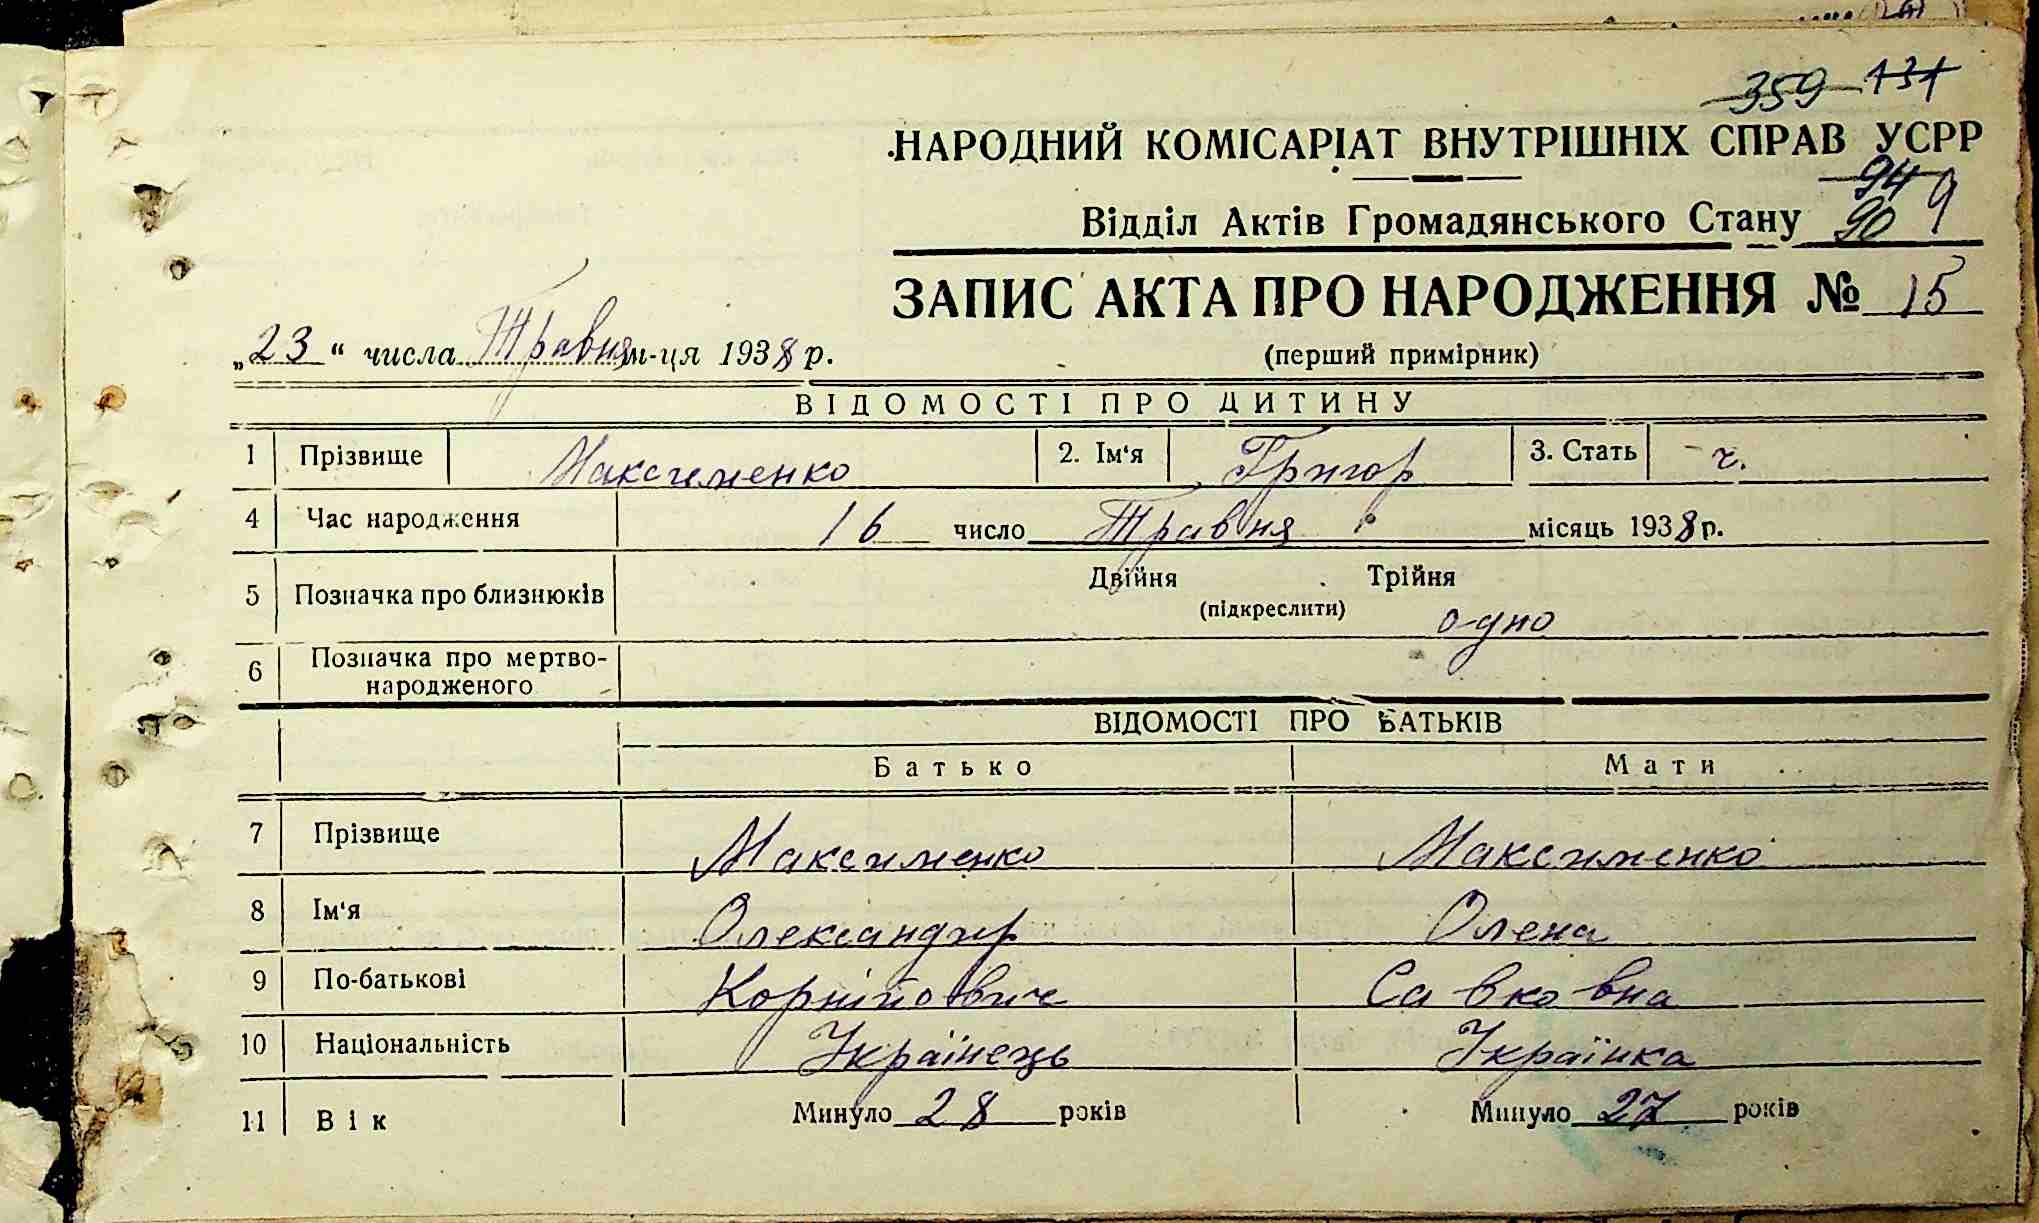 359 131
НАРОДНИЙ КОМІСАРІАТ ВНУТРІШНІХ СПРАВ УСРР
94 9
Відділ Актів Громадянського Стану 90
ЗАПИС АКТА ПРО НАРОДЖЕННЯ № 15
„23“ числа Травня м-ця 1938 р.
(перший примірник)
ВІДОМОСТІ ПРО ДИТИНУ
1 Прізвище Максименко 2. Ім'я Григор 3. Стать ч.
4 Час народження 16 число Травня місяць 1938 р.
5 Позначка про близнюків Двійня Трійня
(підкреслити) одно
6 Позначка про мертво-
народженого
ВІДОМОСТІ ПРО БАТЬКІВ
Батько Мати
7 Прізвище Максименко Максименко
8 Ім'я Олександр Олена
9 По-батькові Корнійович Савковна
10 Національність Українець Українка
11 Вік Минуло 28 років Минуло 27 років